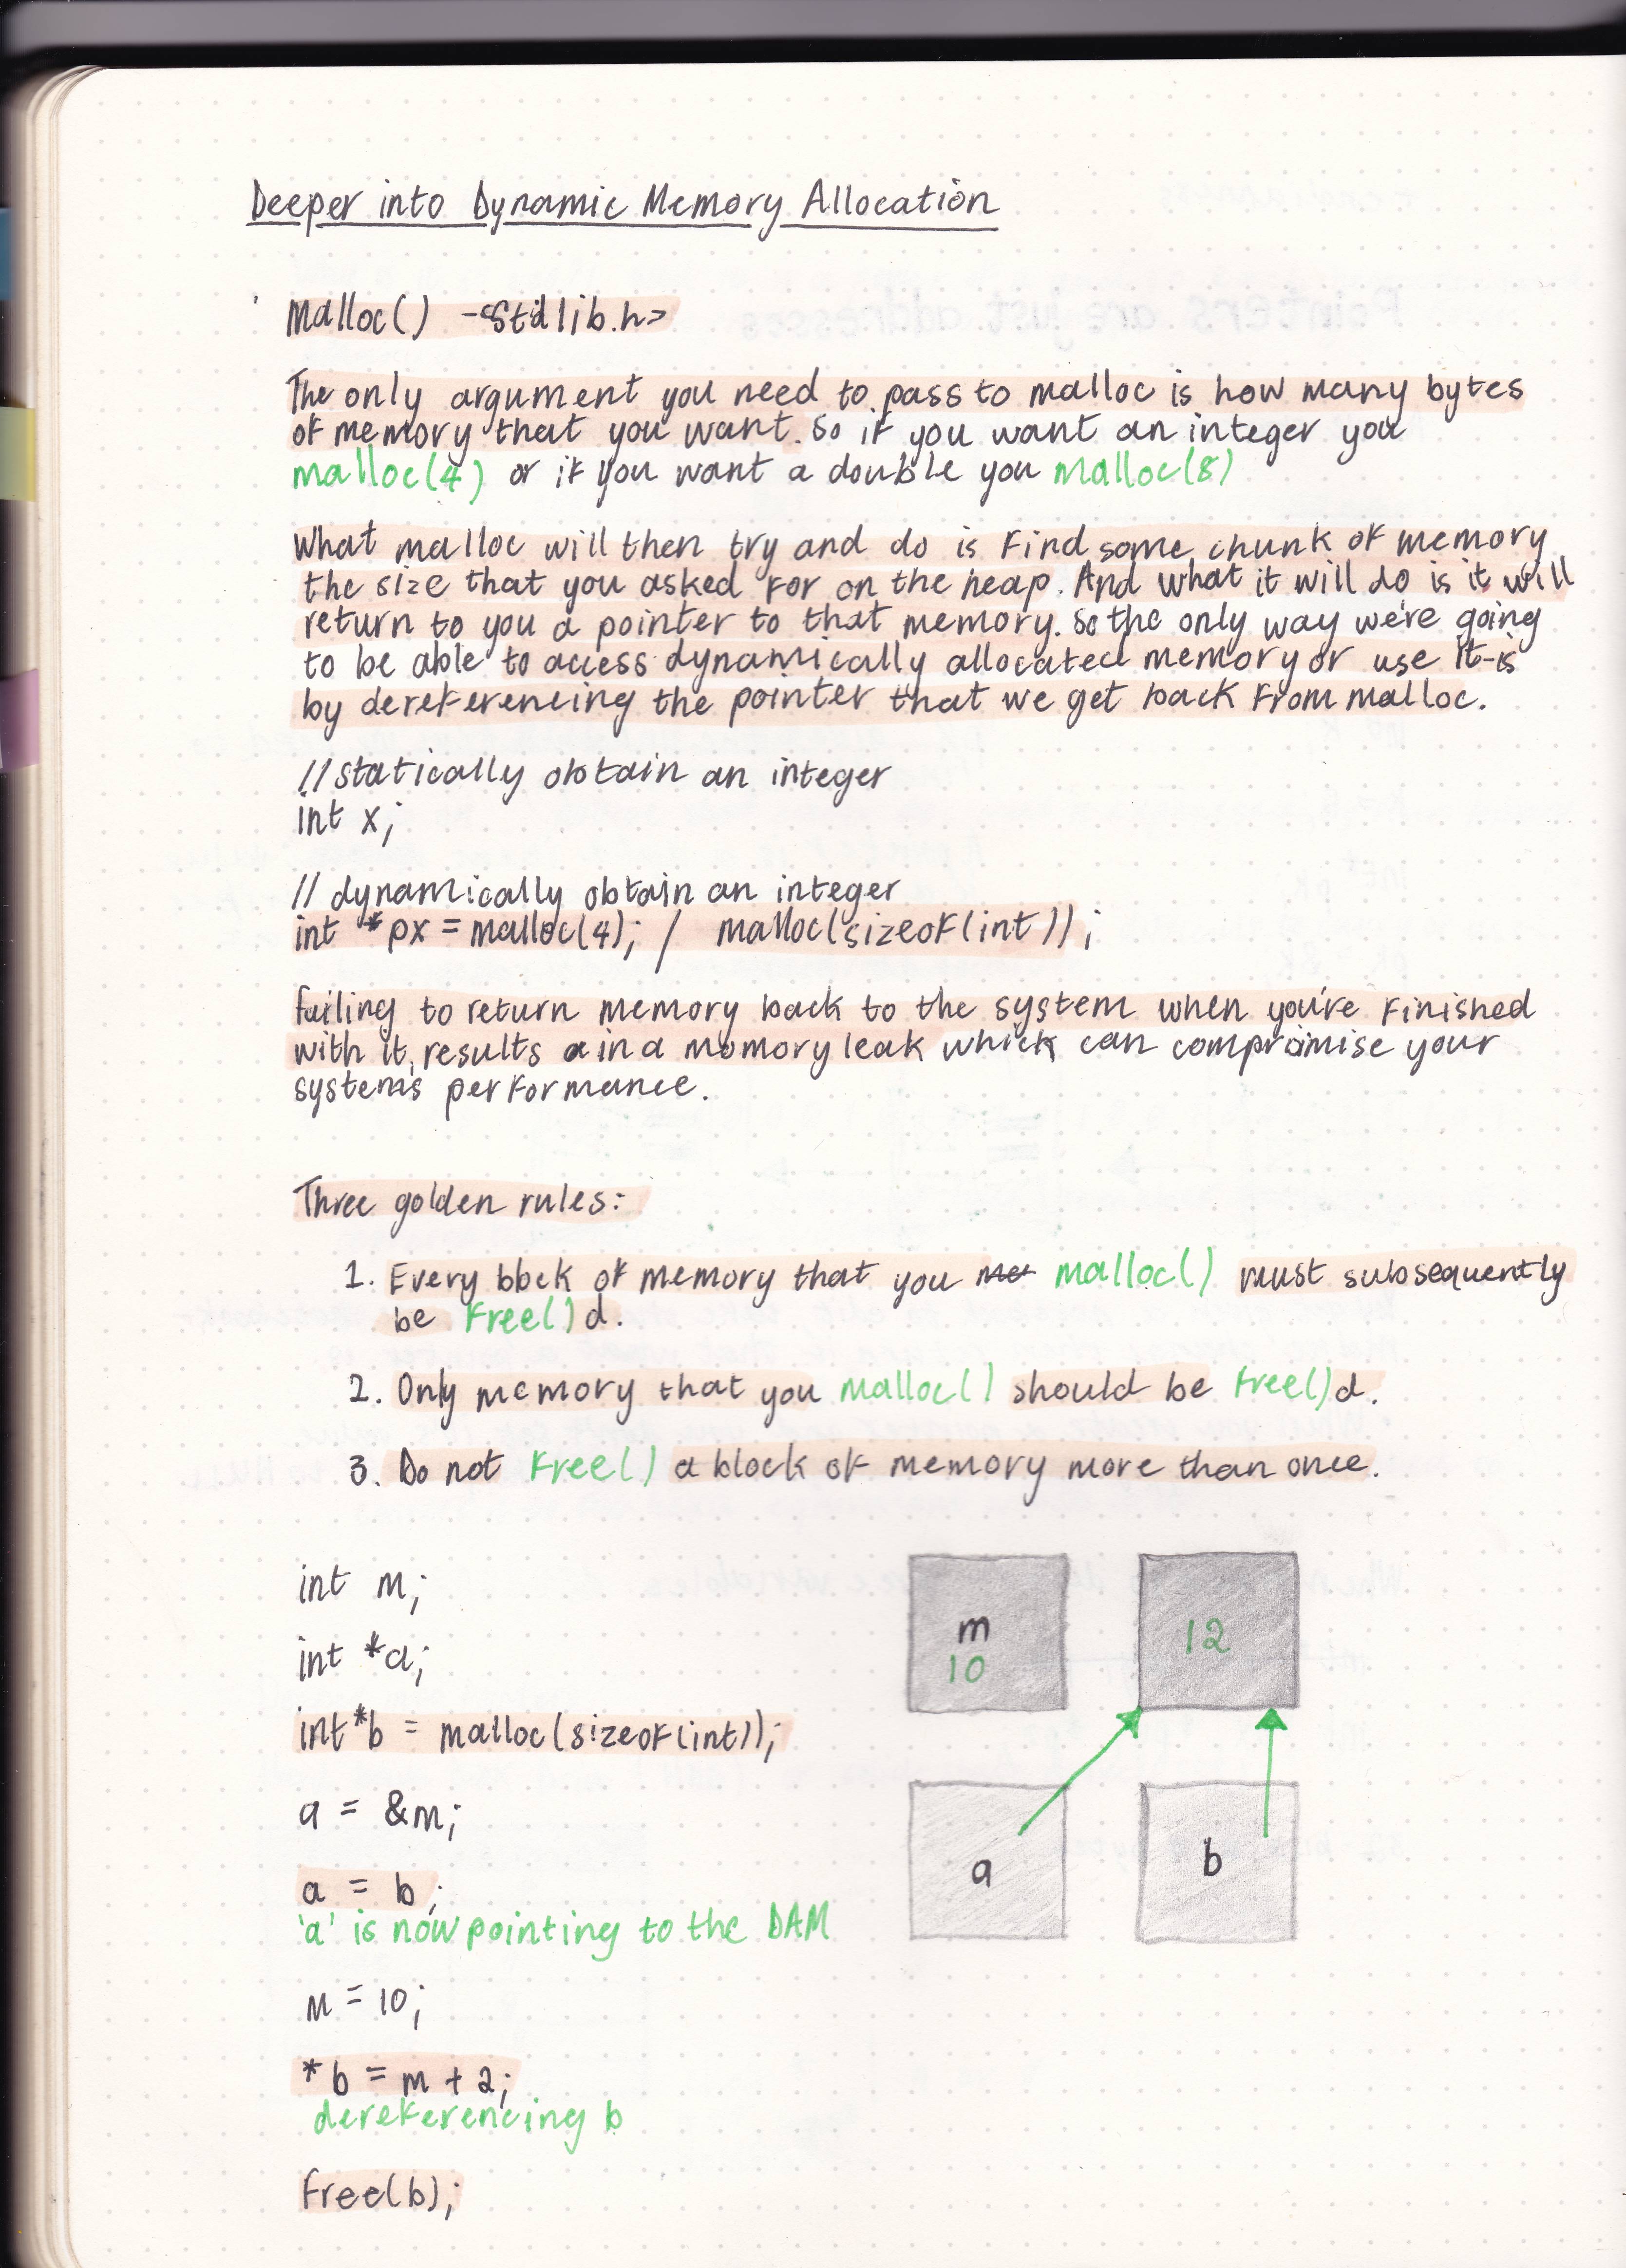 Deeper into Dynamic Memory Allocation
Malloc() - <stdlib.h>
The only argument you need to pass to malloc is how many bytes
of memory that you want. So if you want an integer you
malloc(4) or if you want a double you malloc(8)
What malloc will then try and do is find some chunk of memory
the size that you asked for on the heap. And what it will do is it will
return to you a pointer to that memory. So the only way we're going
to be able to access dynamically allocated memory or use it is
by dereferencing the pointer that we get back from malloc.
//statically obtain an integer
int x;
// dynamically obtain an integer
int *px = malloc(4); / malloc(sizeof(int));
failing to return memory back to the system when you're finished
with it, results in a memory leak which can compromise your
system's performance.
Three golden rules:
1. Every block of memory that you malloc() must subsequently
be free()d.
2. Only memory that you malloc() should be free()d.
3. Do not free() a block of memory more than once.
int m;
int *a;
int*b = malloc(sizeof(int));
a = &m;
a = b;
'a' is now pointing to the DAM
m = 10;
*b = m + 2;
dereferencing b
free(b);
m
10
12
a
b